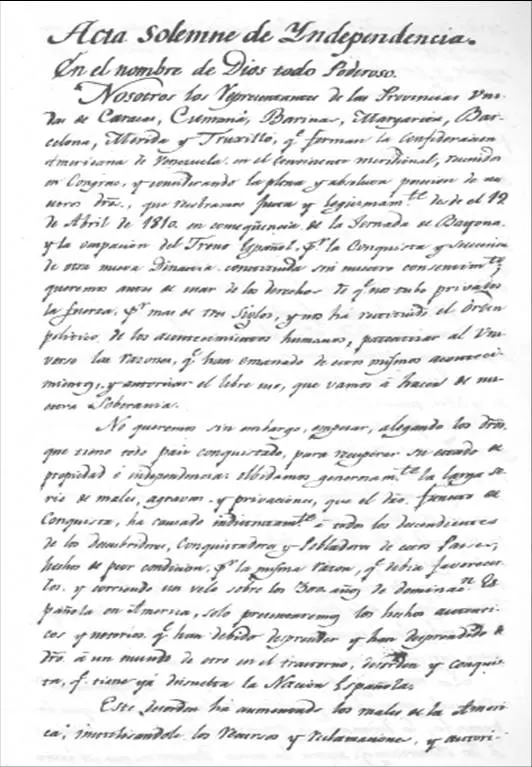 Acta Solemne de Yndependencia.
En el nombre de Dios todo Poderoso.
Nosotros los Representantes de las Provincias Uni-
das de Caracas, Cumaná, Barinas, Margarita, Bar-
celona, Merida y Truxillo, q.e forman la Confederacion
Americana de Venezuela en el Continente meridional, reunidos
en Congreso, y considerando la plena y absoluta posesion de nu-
estros dros., que recobramos justa y legitimam.te desde el 19
de Abril de 1810. en conseqüencia de la Jornada de Bayona
y la ocupacion del Trono Español, p.r la Conquista y sucesion
de otra nueva Dinastia constituida sin nuestro consentim.to,
queremos antes de usar de los derechos de q.e nos tubo privados
la fuerza, p.r mas de tres siglos, y nos ha restituido el órden
politico de los acontecimientos humanos, patentizar al Uni-
verso las razones, q.e han emanado de estos mismos aconteci-
mientos, y autorizar el libre uso, que vamos á hacer de nu-
estra Soberania.
No queremos sin embargo, empezar, alegando los dros.
que tiene todo pais conquistado, para recuperar su estado de
propiedad é independencia: olbidamos generosam.te la larga se-
rie de males, agravios y privaciones, que el dro. funesto de
Conquista, ha causado indistintam.te á todos los descendientes
de los descubridores, Conquistadores y Pobladores de estos Paises,
hechos de peor condicion, p.r la misma razon, q.e debia favorecer-
los. y corriendo un velo sobre los 300. años de dominac.n Es-
pañola en America, solo presentaremos los hechos autenti-
cos y notorios, q.e han debido desprender y han desprendido de
dro. á un mundo de otro en el trastorno, desorden y conquis-
ta, q.e tiene yá disuelta la Nacion Española.
Este desorden ha aumentado los males de la Ameri-
ca, inutilisandole los recursos y reclamaciones, y autori-